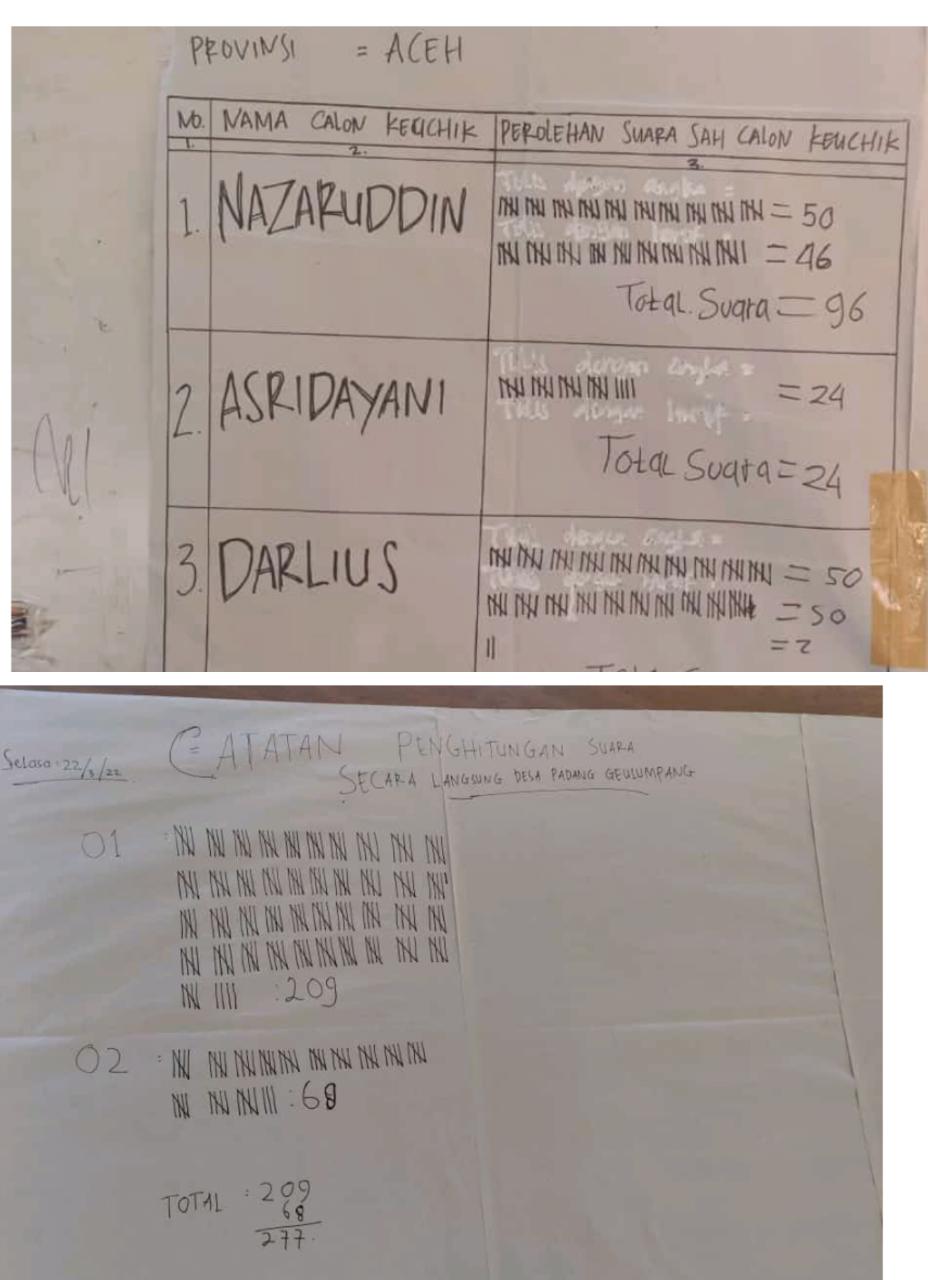 PROVINSI = ACEH
NO. NAMA CALON KEUCHIK PEROLEHAN SUARA SAH CALON KEUCHIK
1. 2. 3.
1. NAZARUDDIN
Tulis dengan angka =
= 50
Tulis dengan huruf =
= 46
Total Suara = 96
2. ASRIDAYANI
Tulis dengan angka =
= 24
Tulis dengan huruf =
Total Suara = 24
3. DARLIUS
Tulis dengan angka =
= 50
= 50
= 2
Selasa : 22/3/22
CATATAN PENGHITUNGAN SUARA
SECARA LANGSUNG DESA PADANG GEULUMPANG
01 :
: 209
02 :
: 68
TOTAL : 209
68
277.